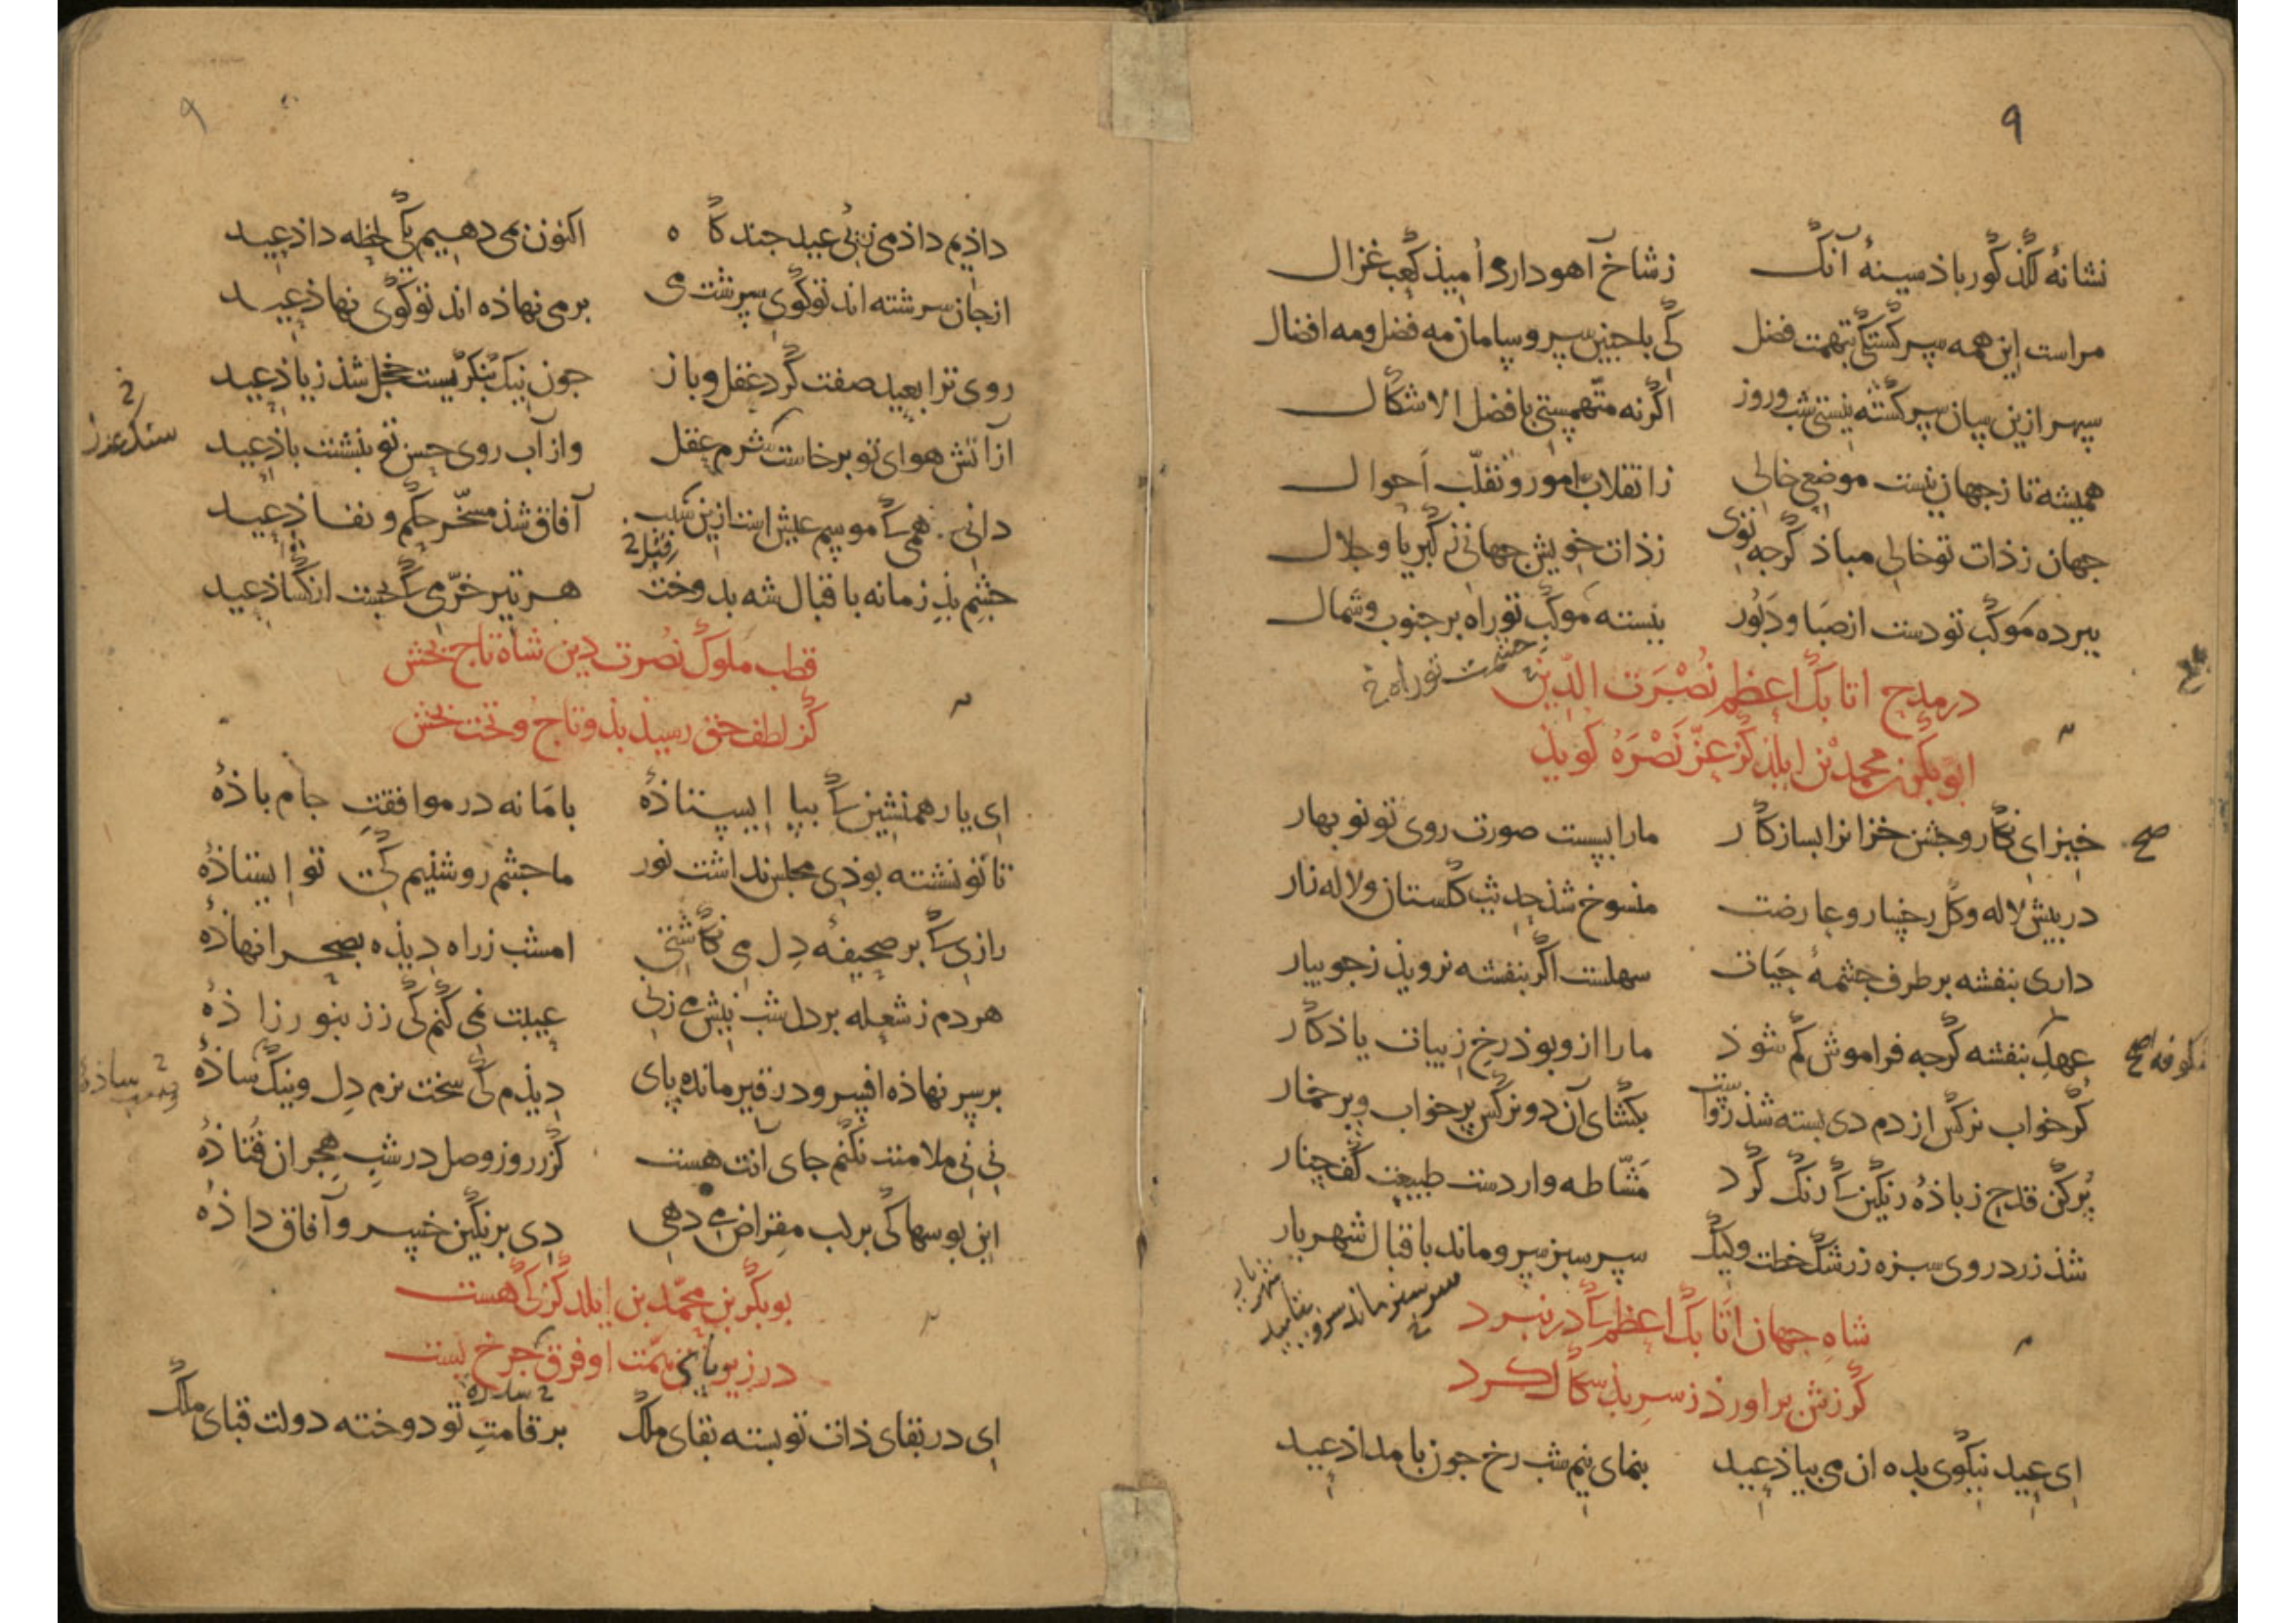 ۹
نشانهٔ لگد گور باذ سینهٔ آنک زشاخ آهو دارد اُمیذ کعب غزال
مراست این همه سرگشتگی بتهمت فضل کی با چنین سر و سامان مه فضل و مه افضال
سپهر ازین سان سرگشته نیستی شب و روز اگر نه متّهمستی بافضل الاشکال
همیشه تا ز جهان نیست موضعی خالی ز انقلاب امور و تقلّب احوال
جهان ز ذات تو خالی مباذ گرچه توی ز ذات خویش جهانی ز کبریا و جلال
ببرده موکب تو دست از صَبا و دَبُور ببسته موکب تو راه بر جنوب و شمال
حشمت تو راه خ
در مدح اتابک اعظم نُصْرَت الدّین
ابوبکر بن محمد بن ایلدگز عزّ نَصْرَهُ گویذ
خیز ای نگار و جشن خزانرا بساز کار ما را بسست صورت روی تو نوبهار
صح
در پیش لاله و گل رخسار و عارضت منسوخ شذ حدیث گلستان و لاله زار
داری بنفشه بر طرف چشمهٔ حیات سهلست اگر بنفشه نرویذ ز جویبار
عهد بنفشه گرچه فراموش گم شوذ ما را ازو بوذ رخ زیبات یاذگار
گر خواب نرگس از دم دی بسته شذ رواست بگشای آن دو نرگس پر خواب و پر خمار
پُر کن قدح ز باذهٔ رنگین که رنگ کرد مَشّاطه وار دست طبیعت کف چنار
شذ زرد روی سبزه ز رشک خطت ولیک سرسبز سرو ماند باقبال شهریار
سرسبز ماند سرو بتایید شهریار
خ
شاهِ جهان اتابک اعظم که در نبرد
گرزش براورد ز سرِ بذسگال گرد
ای عید نیکوی بده ان می بیاذ عید بنمای نیم شب رخ چون بامداذ عید
۹
داذیم داذ می ز پی عید چند گاه اکنون می دهیم یکی لحظه داذ عید
از جان سرشته اند تو گوی سرشت می بر می نهاذه اند تو گوی نهاذ عید
روی ترا بعید صفت کرد عقل و باز چون نیک بنگریست خجل شذ ز یاذ عید
از آتش هوای تو برخاست شرم عقل واز آب روی حسن تو بنشست باذ عید
دانی همی که موسم عیش است ازین سبب آفاق شذ مسخّر حکم و نفاذ عید
چشم بذ زمانه باقبال شه بدوخت هر تیر خرّمی که بجست از گشاذ عید
قطب ملوک نُصرت دین شاه تاج بخش
کز لطف حق رسیذ بذو تاج و تخت بخش
ای یار همنشین که بپا ایستاذهٔ با ما نه در موافقتِ جام باذهٔ
تا تو نشسته بوذی مجلس نداشت نور ما چشم روشنیم کی تو ایستاذهٔ
رازی که بر صحیفهٔ دل می نگاشتی امشب ز راه دیذه بصحرا نهاذهٔ
هر دم ز شعله بر دل شب نیش می زنی عیبت نمی کنم کی ز زنبور زاذهٔ
بر سر نهاذه افسر و در قیر مانده پای دیذم کی سخت نرم دل و نیک ساذهٔ
نی نی ملامتت نکنم جای آنت هست کز روز وصل در شبِ هجران فتاذهٔ
این بوسها کی بر لب مقراض می دهی دی بر نگین خسرو آفاق داذهٔ
بوبکر بن محمّد بن ایلدگز کی هست
در زیر پای همّت او فرق چرخ پست
ای در بقای ذات تو بسته بقای ملک بر قامتِ تو دوخته دولت قبای ملک